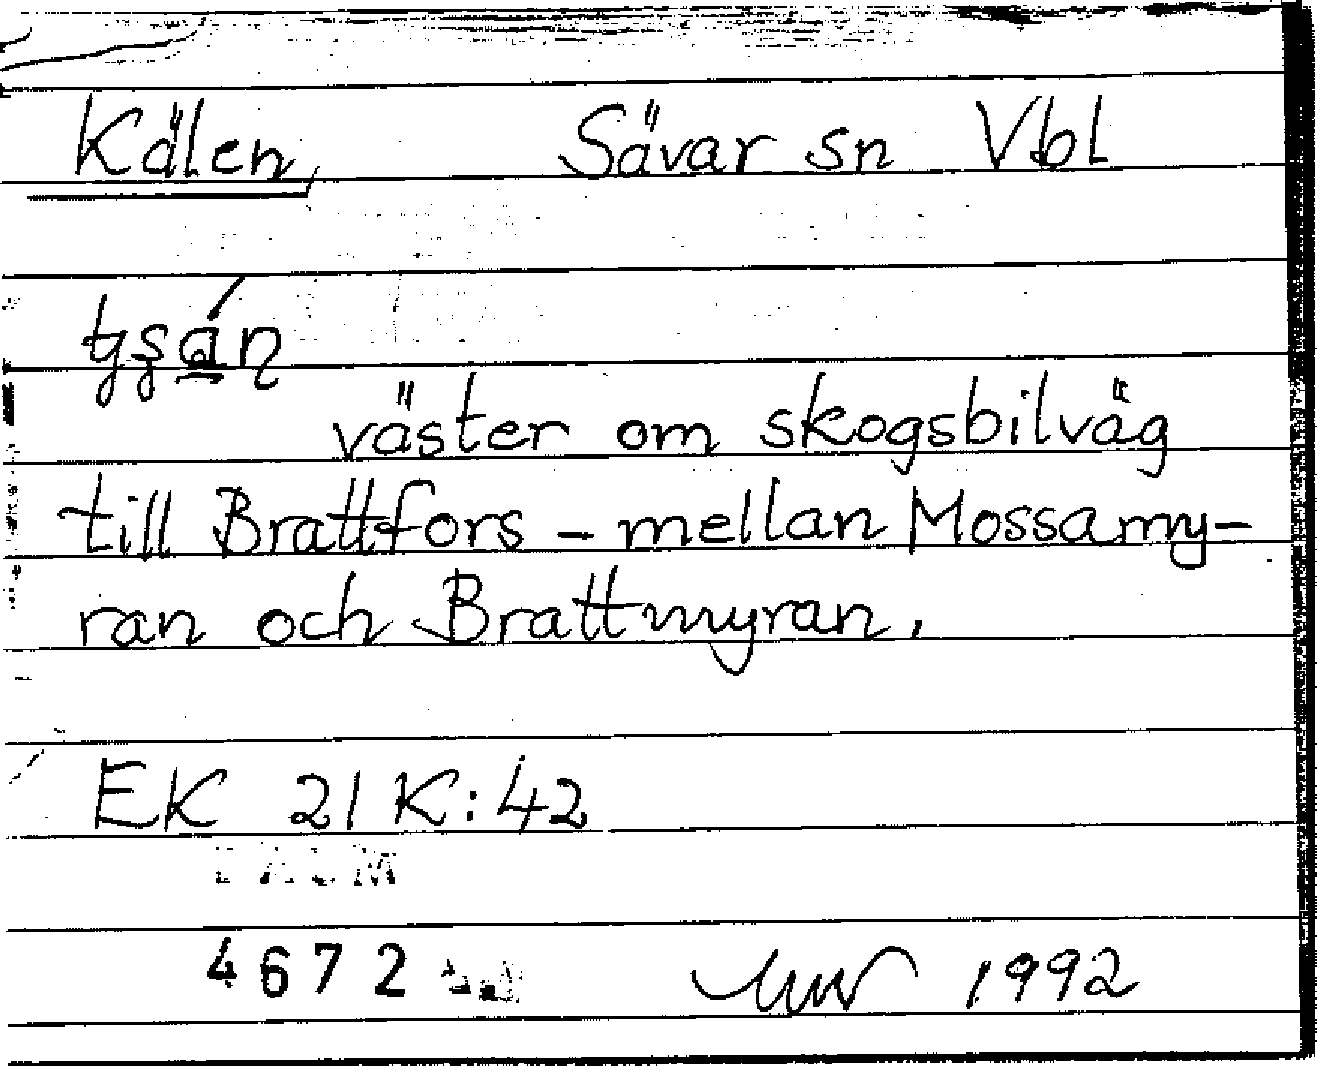 Kälen Sävar sn Vbl
väster om skogsbilväg
till Brattfors - mellan Mossamy-
ran och Brattmyran.
EK 21 K:42
DAUM
4672 1992